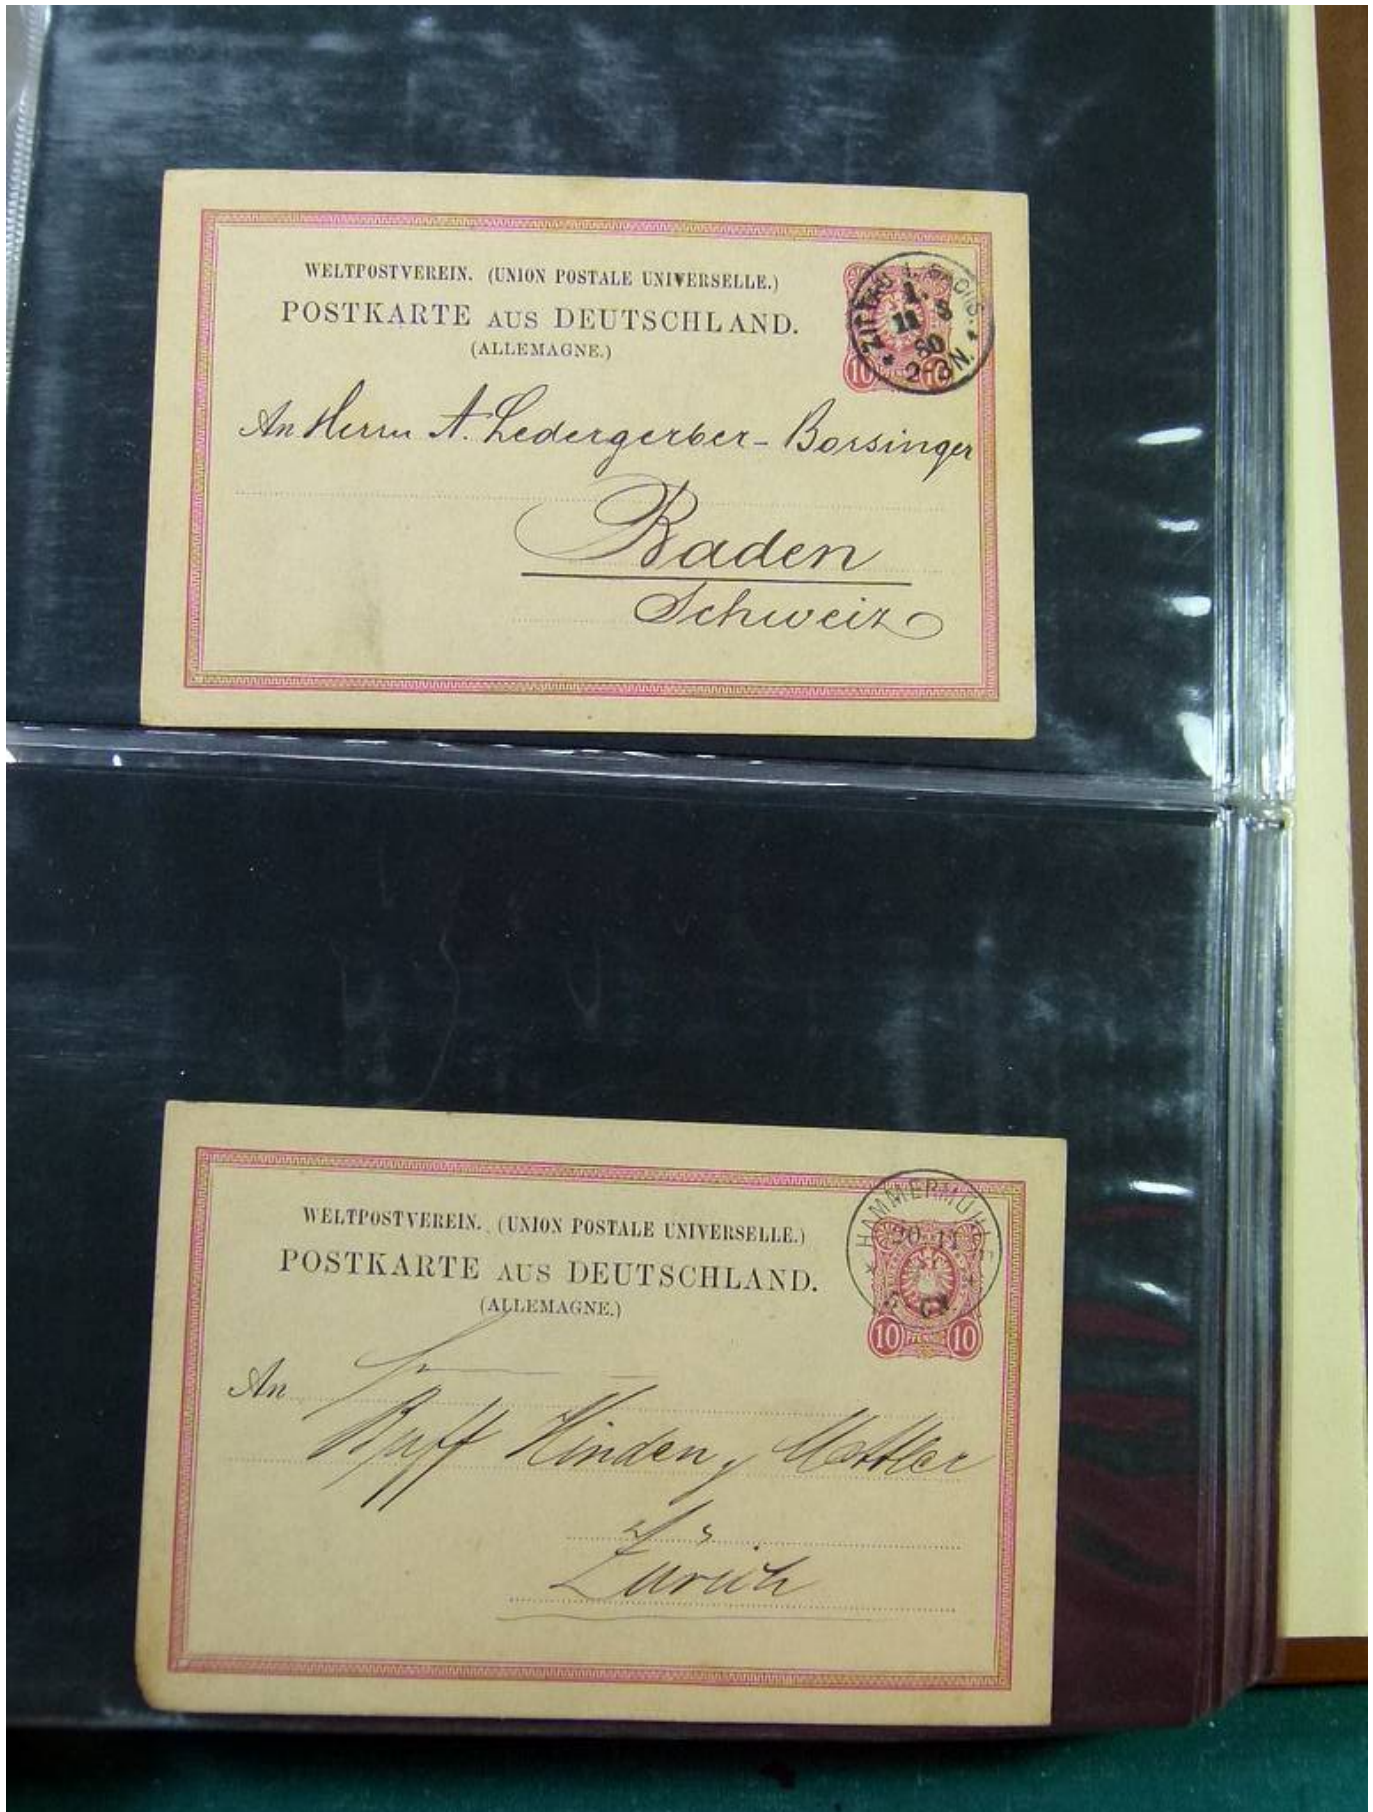 WELTPOSTVEREIN. (UNION POSTALE UNIVERSELLE.)
POSTKARTE AUS DEUTSCHLAND.
(ALLEMAGNE.)
ZITTAU I. SACHS.
1. 8
11
80
2-3N.
10 PFENNIG 10
An Herrn A. Ledergerber-Borsinger
Baden
Schweiz
WELTPOSTVEREIN. (UNION POSTALE UNIVERSELLE.)
POSTKARTE AUS DEUTSCHLAND.
(ALLEMAGNE.)
HAMMERMÜHLE
20 11
10 PFENNIG 10
An
Hinden, Mettler
Zürich